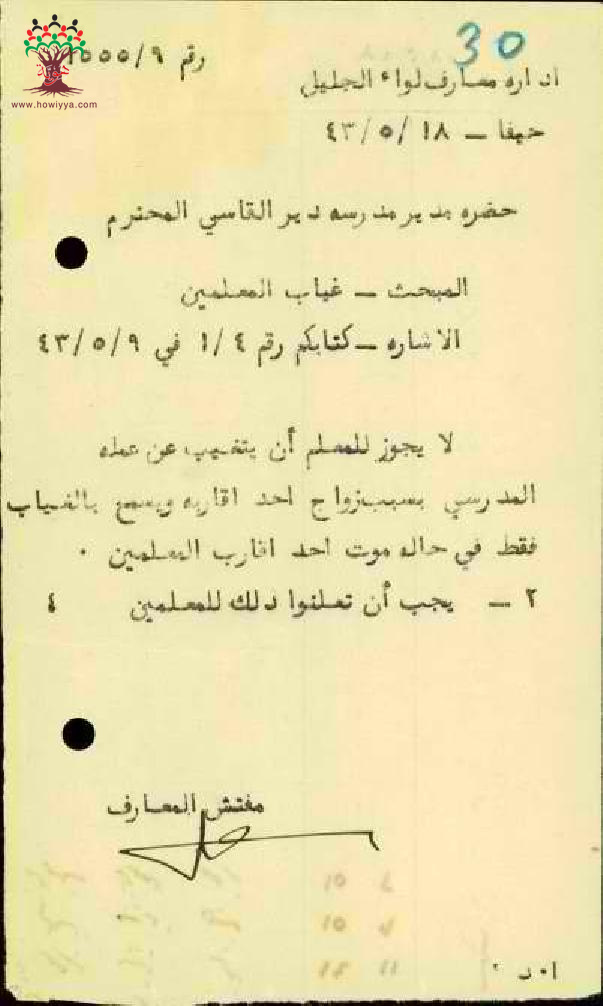 30
رقم ١٥٥٥/٩
www.howiyya.com
اداره معارف لواء الجليل
حيفا ــ ٤٣/٥/١٨
حضره مدير مدرسه دير القاسي المحترم
المبحث ــ غياب المعلمين
الاشاره ــ كتابكم رقم ١/٤ في ٤٣/٥/٩
لا يجوز للمعلم أن يتغيب عن عمله
المدرسي بسبب زواج احد اقاربه ويسمح بالغياب
فقط في حاله موت احد اقارب المعلمين ٠
٢ ــ يجب أن تعلنوا دلك للمعلمين ٤
مفتش المعارف